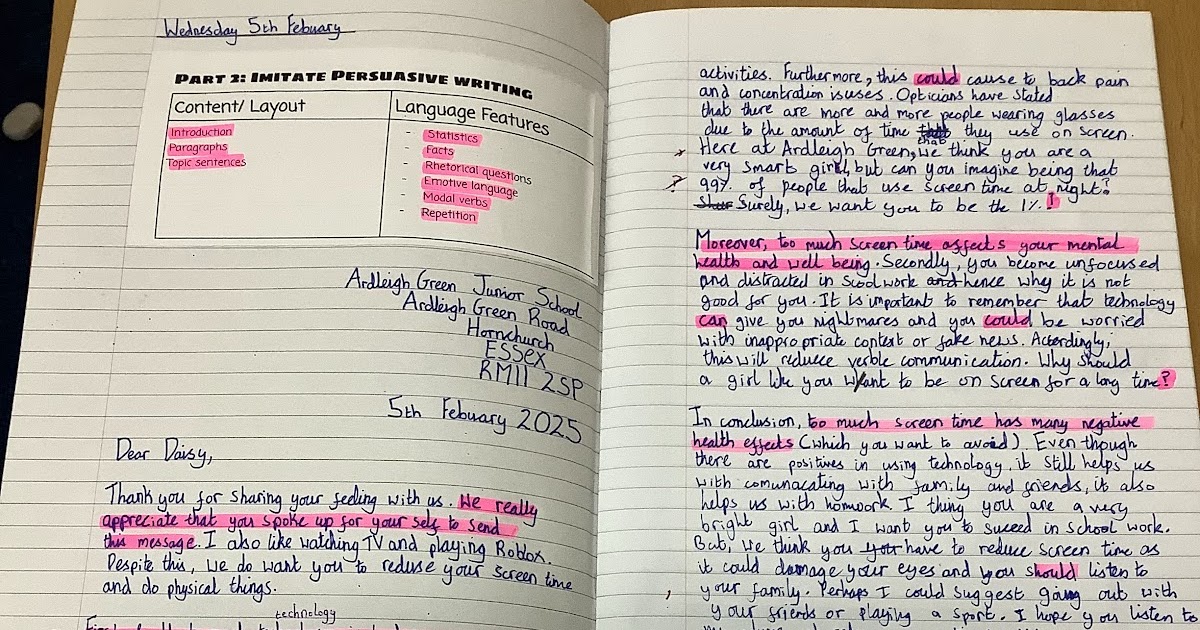 Wednesday 5th Febuary
PART 2: IMITATE PERSUASIVE WRITING
Content/ Layout
Introduction
Paragraphs
Topic sentences
Language Features
- Statistics
- Facts
- Rhetorical questions
- Emotive language
- Modal verbs
- Repetition
Ardleigh Green Junior School
Ardleigh Green Road
Hornchurch
ESSex
RM11 2SP
5th Febuary 2025
Dear Daisy,
Thank you for sharing your feeling with us. We really
appreciate that you spoke up for your self to send
this message. I also like watching TV and playing Roblox.
Despite this, we do want you to reduse your screen time
and do physical things.
technology
activities. Furthermore, this could cause to back pain
and concentration isuses. Opticians have stated
that there are more and more people wearing glasses
due to the amount of time that they use on screen.
Here at Ardleigh Green, we think you are a
very smart girl, but can you imagine being that
99% of people that use screen time at night?
Surely, we want you to be the 1%!
Moreover, too much screen time affects your mental
health and well being. Secondly, you become unfocused
and distracted in scoolwork and hence why it is not
good for you. It is important to remember that technology
can give you nightmares and you could be worried
with inappropriate contest or fake news. Accerdingly,
this will reducce verble communication. Why should
a girl like you want to be on screen for a long time?
In conclusion, too much screen time has many negative
health effects (which you want to avoid). Even though
there are positives in using technology, it still helps us
with comunacating with family and friends, it also
helps us with homwork. I thing you are a very
bright girl and I want you to suceed in school work.
But, we think you you have to reduce screen time as
it could damage your eyes and you should listen to
your family. Perhaps I could suggest going out with
your friends or playing a sport. I hope you listen to